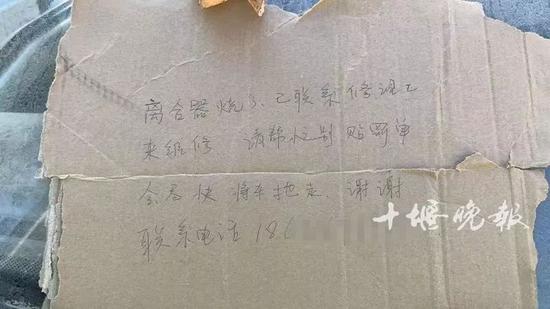 离合器烧了、已联系修理工
来维修 请帮忙别贴罚单
会尽快将车拖走 谢谢
联系电话 186
十堰晚报